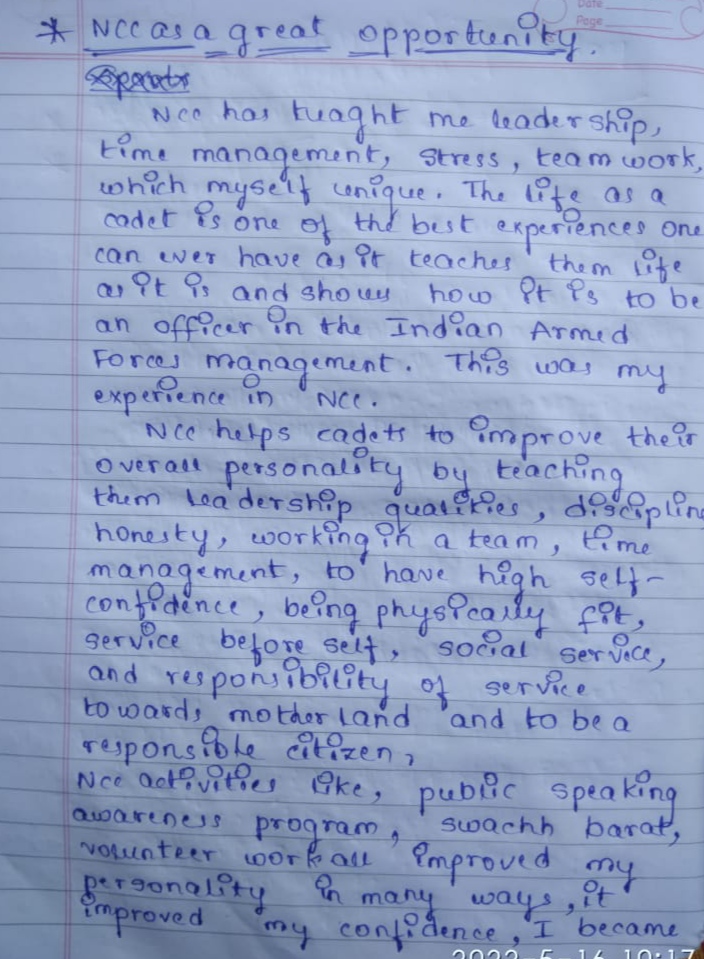 Date
Page
* NCC as a great opportunity.
NCC has tuaght me leadership,
time management, stress, team work,
which myself unique. The life as a
cadet is one of the best experiences one
can ever have as it teaches them life
as it is and shows how it is to be
an officer in the Indian Armed
Forces management. This was my
experience in NCC.
NCC helps cadets to improve their
overall personality by teaching
them leadership qualities, disciplin
honesty, working in a team, time
management, to have high self-
confidence, being physically fit,
service before self, social service,
and responsibility of service
towards motherland and to be a
responsible citizen,
NCC activities like, public speaking
awareness program, swachh barat,
volunteer work all improved my
personality in many ways, it
improved my confidence, I became
2022-5-16 10:17